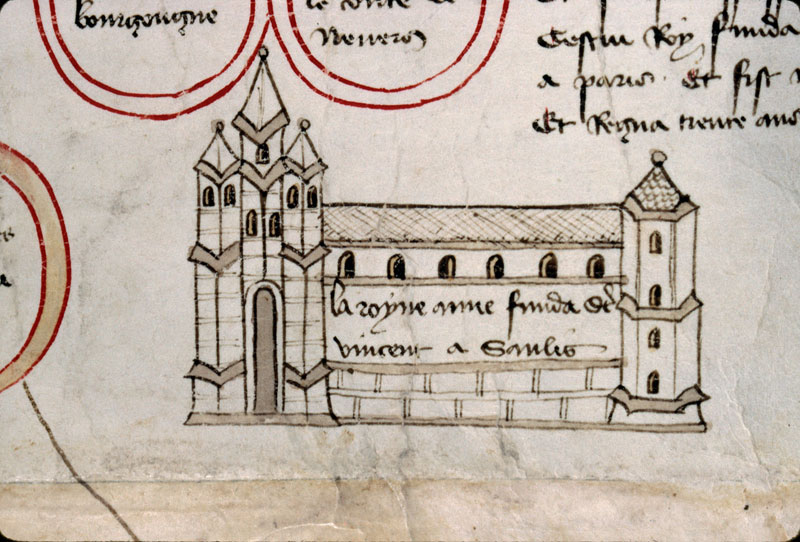 bourgougne
le conte de
Nevers
Cestui Roy funda
a paris. Et fist
Et Regna trente ans
la royne anne funda st
vincent a Saulis